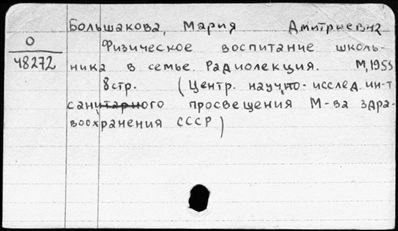 Большакова, Мария Дмитриевна
О
48272
Физическое воспитание школь-
ника в семье. Радиолекция. М, 1955
8 стр. (Центр. научно-исслед. ин-т
санитарного просвещения М-ва здра-
воохранения СССР)